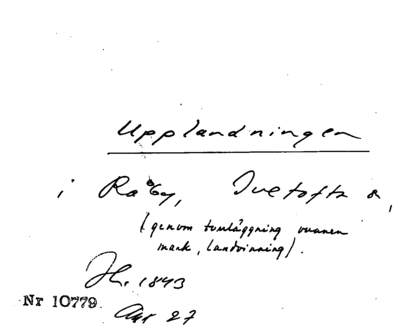 Upplandningen
i Råby, Ivetofta s.,
(genom torrläggning vunnen
mark, landvinning).
H. 1843
Nr 10779
27